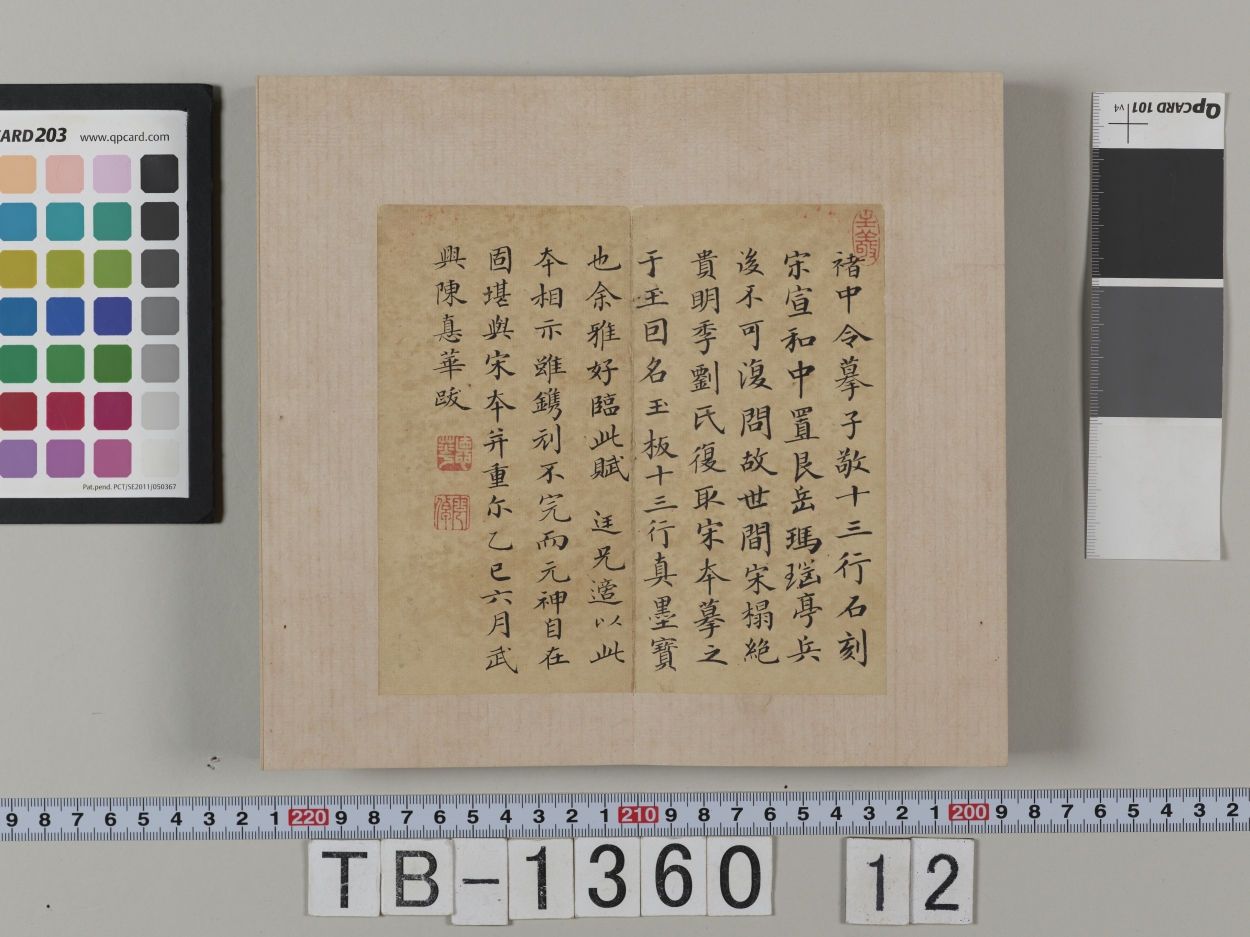 褚中令摹子敬十三行石刻
宋宣和中置艮岳瑪瑙亭兵
後不可復問故世間宋榻絶
貴明季劉氏復取宋本摹之
于玉回名玉板十三行真墨寶
也余雅好臨此賦 迋兄適以此
本相示雖鐫刓不完而元神自在
固堪與宋本并重尔乙巳六月武
興陳惪華跋
ARD203 www.qpcard.com
Pat.pend. PCT/SE2011/050367
QPCARD 101 v4
9 8 7 6 5 4 3 2 1 220 9 8 7 6 5 4 3 2 1 210 9 8 7 6 5 4 3 2 1 200 9 8 7 6 5 4 3 2
TB-1360 12